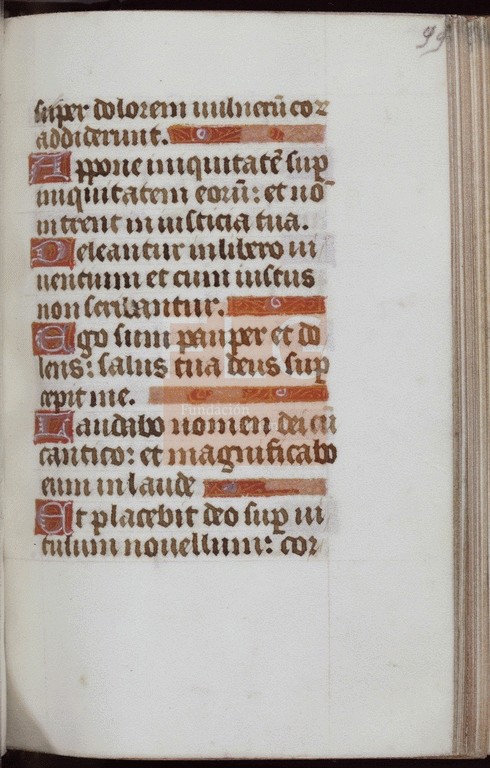 99
super dolorem uulnerū cor
addiderunt.
Appone iniquitatē sup
iniquitatem eorū: et nō
intrent in iusticia tua.
Deleantur in libro ui
uentium et cum iustus
non scribantur.
Ego sum pauper et do
lens: salus tua deus sup
cepit me.
Laudabo nomen dei cū
cantico: et magnificabo
eum in laude
Et placebit deo sup ui
tulum nouellum: cor
Fundación